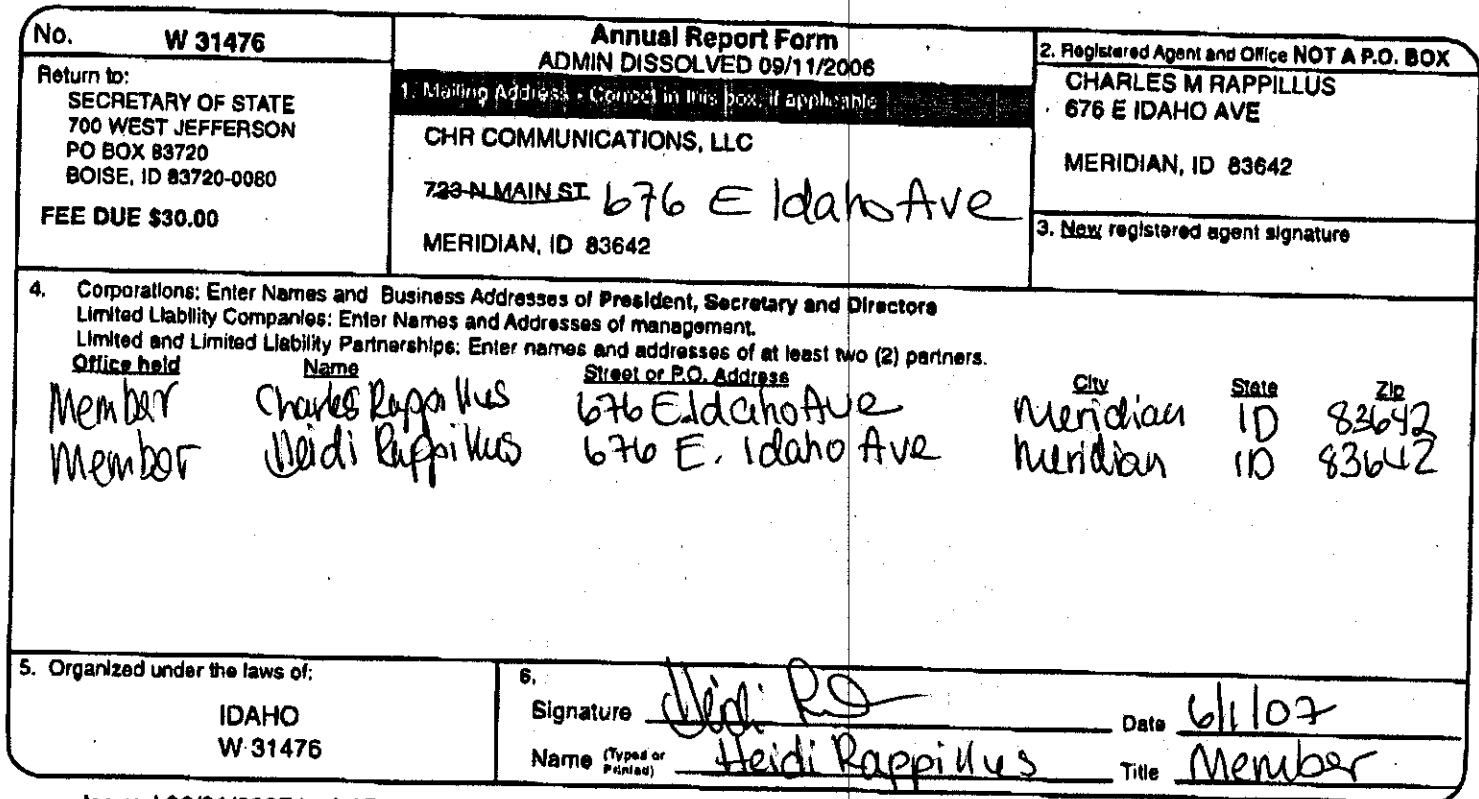 No. W 31476
Return to:
SECRETARY OF STATE
700 WEST JEFFERSON
PO BOX 83720
BOISE, ID 83720-0080
FEE DUE $30.00
Annual Report Form
ADMIN DISSOLVED 09/11/2006
1. Mailing Address - Correct in this box, if applicable
CHR COMMUNICATIONS, LLC
723 N MAIN ST 676 E Idaho Ave
MERIDIAN, ID 83642
2. Registered Agent and Office NOT A P.O. BOX
CHARLES M RAPPILLUS
676 E IDAHO AVE
MERIDIAN, ID 83642
3. New registered agent signature
4. Corporations: Enter Names and Business Addresses of President, Secretary and Directors
Limited Liability Companies: Enter Names and Addresses of management.
Limited and Limited Liability Partnerships: Enter names and addresses of at least two (2) partners.
Office held Name Street or P.O. Address City State Zip
Member Charles Rappillus 676 E Idaho Ave Meridian ID 83642
Member Heidi Rappillus 676 E. Idaho Ave Meridian ID 83642
5. Organized under the laws of:
IDAHO
W 31476
6.
Signature Heidi Date 6/1/07
Name (Typed or Printed) Heidi Rappillus Title Member